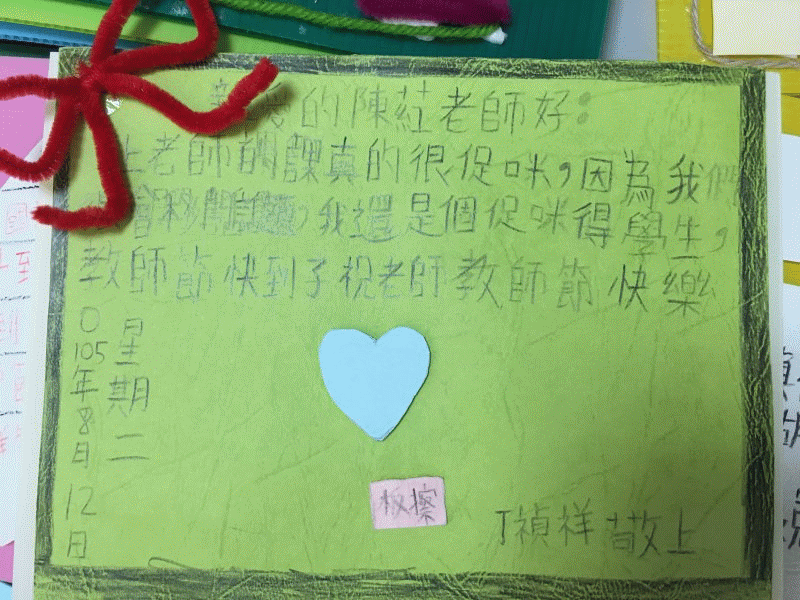 的陳紅老師好：
上老師的課真的很促咪，因為我們
，我還是個促咪得學生，
教師節快到了祝老師教師節快樂
0105年8日12日
星期二
板擦
丁禎祥敬上